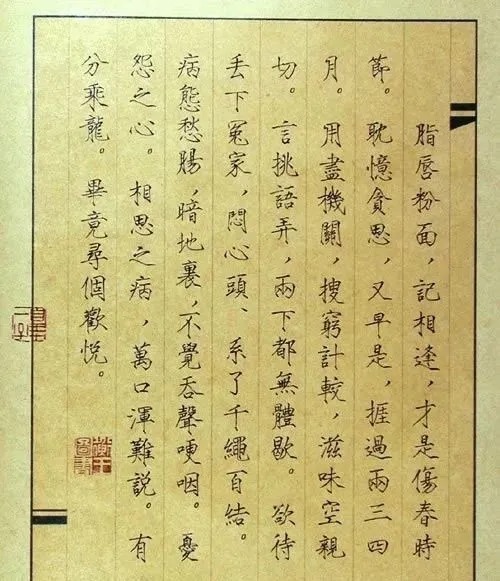 脂唇粉面，記相逢，才是傷春時
節。耽憶貪思，又早是，捱過兩三四
月。用盡機關，搜窮計較，滋味空親
切。言挑語弄，兩下都無體歇。欲待
丢下冤家，悶心頭、系了千繩百結。
病態愁腸，暗地裏，不覺吞聲哽咽。憂
怨之心。相思之病，萬口渾難説。有
分乘龍。畢竟尋個歡悦。